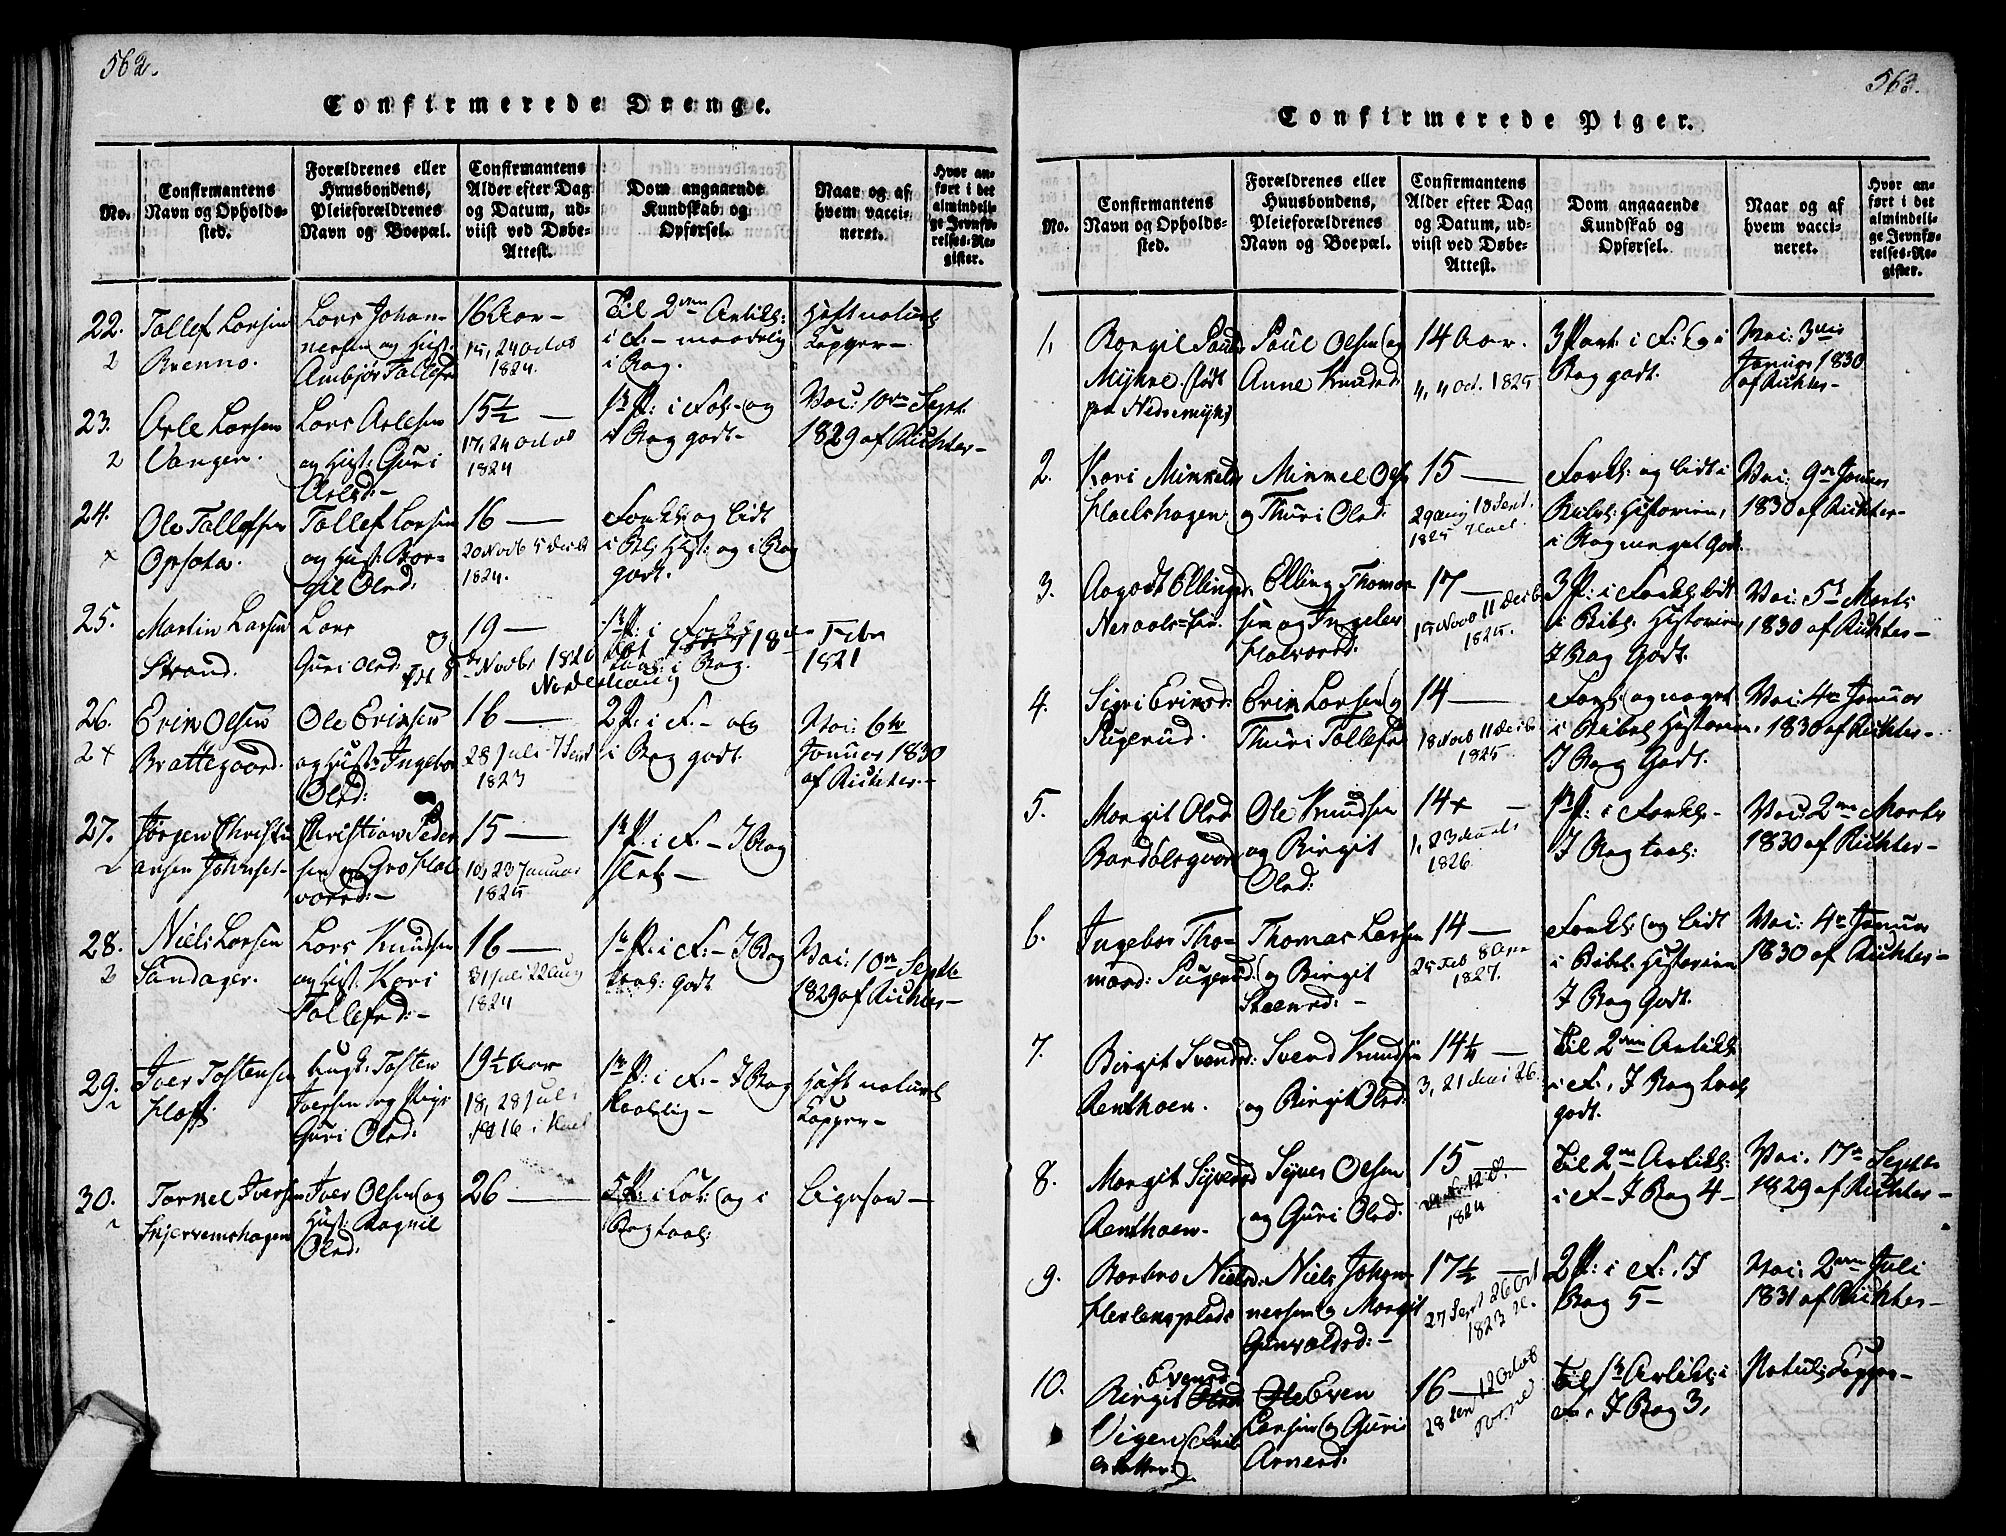 562.
Confirmerede Drenge.
No.
Confirmantens
Navn og Opholds-
sted.
Forældrenes eller
Huusbondens,
Pleieforældrenes
Navn og Boepæl.
Confirmantens
Alder efter Dag
og Datum, ud-
viist ved Døbe-
Attest.
Dom angaaende
Kundskab og
Opførsel.
Naar og af
hvem vacci-
neret.
Hvor an-
ført i det
almindeli-
ge Jevnfø-
relses-Re-
gister.
22.
2
Tollef Larsen
Brenno.
Lars Johan-
nesen og Hust:
Ambjør Tollefsd
16 Aar -
15, 24 octob
1824.
Til 2den Artikl:
i F. - maadelig
i Rag.
Haft naturl
Kopper -
23.
2
Asle Larsen
Vangen.
Lars Aslesen
og Hust: Guri
Aslesd: -
15½ -
17, 24 octob
1824
1ste P: i Fork: - og
i Rag godt -
Vac: 10de Sept.
1829 af Richter -
24.
x
Ole Tollefsen
Opsata.
Tollef Larsen
og Hust: Bor-
gil Olsd:
16 -
20 Novb 5 Decb
1824.
Forkl: og lidt
i Bibl: Hist: og i Rag
godt.
25.
Martin Larsen
Strand.
Lars
og
Guri Olsd.
19 -
Novbr 1820
Norderhoug
1ste P: i Forkl:
i Rag.
18de Febr
1821
26.
2 x
Erik Olsen
Brattegaard.
Ole Eriksen
og Hust: Ingebor
Olsd:
16 -
28 Juli 7 Sept
1823
2 P: i F. - og
i Rag godt.
Vac: 6te
Januar 1830
af Richter. -
27.
2
Jørgen Christi
ansen Johnset -
Christian Peder
sen og Gro Hal
vorsd: -
15 -
10, 23 Januar
1825
1ste P: i F. - I Rag
slet -
28.
2
Niels Larsen
Sandager.
Lars Knudsen
og Hust: Kari
Tollefsd: -
16 -
31 Juli 22 Aug
1824
1ste P: i F. - I Rag
taal: godt
Vac: 10de Septb
1829 af Richter -
29.
2
Iver Tostensen
Hoff.
Tosten
Iversen og Pige
Guri Olsd:
19½ Aar
18, 28 Juli
1816 i Hoel
1ste P: i F. - I Rag
taalelig -
Haft naturl
Kopper -
30.
2
Tarnel Iversen
Skjervemshagen
Iver Olsen og
Hust: Ragnil
Olsd:
26 -
5 P: i Fork: og i
Rag taal:
Ligesaa -
563.
Confirmerede Piger.
No.
Confirmantens
Navn og Opholds-
sted.
Forældrenes eller
Huusbondens,
Pleieforældrenes
Navn og Boepæl.
Confirmantens
Alder efter Dag
og Datum, ud-
viist ved Døbe-
Attest.
Dom angaaende
Kundskab og
Opførsel.
Naar og af
hvem vacci-
neret.
Hvor an-
ført i det
almindeli-
ge Jevnfø-
relses-Re-
gister.
1.
Borgil Paulsd
Mykne. (født
paa Nedremykne)
Paul Olsen og
Anne Knudsd:
14 Aar.
4, 4 Oct. 1825
3 Part: i F: og i
Rag godt.
Vac: 3die
Januar 1830
af Richter -
2.
Kari Mikkelsd
Hoelshagen.
Mikkel Ols
og Thuri Olsd:
15 -
29 aug 18 Sept.
1825 Hoel.
Forkl: og lidt i
Bibel: Historien,
i Rag meget Godt.
Vac: 9de Januar
1830 af Richter -
3.
Aagodt Ellingsd.
Neraals-Eie.
Elling Thomas
sen og Ingebor
Halvorsd:
17 -
15 Novb 11 Decb
1825.
3 P: i Forkl: lidt
i Bibel: Historien
I Rag Godt.
Vac: 5te Marts
1830 af Richter -
4.
Sigri Eriksd:
Sugerud.
Erik Larsen og
Thuri Tollefsd
14 -
18 Novb 11 Decb
1825.
Forkl: og noget
i Bibel: Historien.
I Rag Godt.
Vac: 4de Januar
1830 af Richter -
5.
Margit Olsd
Bardølsgaard
Ole Knudsen
og Birgit
Olsd:
14 x -
1, 23 Marts
1826.
1ste P: i Forkl: -
I Rag taal:
Vac: 2den Marts
1830 af Richter -
6.
Ingebor Tho-
masd: Sugerud:
Thomas Larsen
og Birgit
Steensd: -
14 -
25 Feb 8 Apr
1827.
Forkl: og lidt
i Bibel: Historien
I Rag Godt.
Vac: 4de Januar
1830 af Richter -
7.
Birgit Svendsd:
Aenthoen.
Svend Knudsen
og Birgit Olsd:
14¼ -
3, 21 Mai 26.
Til 2den Artikl:
i F., I Rag taal
godt.
8.
Margit Syversd
Aenthoen -
Syver Olsen
og Guri Olsd:
15 -
1824
Til 2den Artikl:
i F - I Rag 4 -
Vac: 17de Septb
1829 af Richter -
9.
Barbro Nielsd:
Herlensplads
Niels Johan-
nesen og Margit
Gunvaldsd: -
17½ -
27 Sept 26 Oct
1823
2 P: i F:, I
Rag 5 -
Vac: 2den Juli
1831 af Richter -
10.
Evensd
Birgit Olsd
Vigen
Ole Even
Larsen og Guri
Arnesd:
16 -
28 Sept 12 Octob
Torpe
Til 1ste Artikl: i
F. I Rag 3,
Naturl: Kopper -